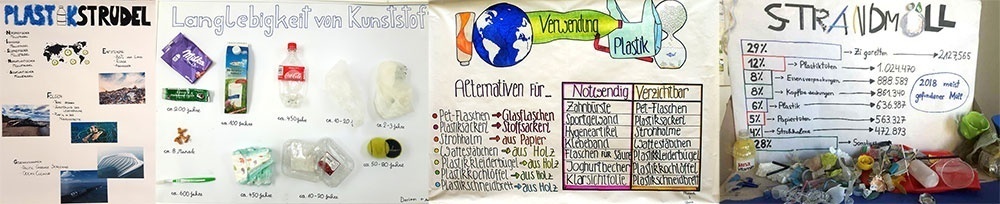 PLASTIKSTRUDEL
Entstehung:
Folgen:
Langlebigkeit von Kunststof
Milka
Coca-Cola
ca. 200 Jahre
ca. 100 Jahre
ca. 450 Jahre
ca. 10-20 J
ca. 2-3 Jahre
ca. 6 Monate
ca. 50-80 Jahre
ca. 600 Jahre
ca. 450 Jahre
ca. 10-20 Jahre
Verwendung
Plastik
Alternativen für...
Pet-Flaschen → Glasflaschen
Plastiksackerl → Stoffsackerl
Strohhalm → aus Papier
Wattestäbchen → aus Holz
Plastikkleiderbügel → aus Holz
Plastikkochlöffel → aus Holz
Plastikschneidbrett → aus Holz
Notwendig Verzichtbar
Zahnbürste Pet-Flaschen
Sportgewand Plastiksackerl
Hygeneartikel Strohhalme
Klebeband Wattestäbchen
Flaschen für Säure Plastikkleiderbügel
Joghurtbecher Plastikkochlöffel
Klarsichtfolie Plastikschneidbrett
STRANDMÜLL
29% Zigaretten → 2,127,565
12% Plastiktüten → 1.024.470
8% Essensverpackungen → 888.589
8% → 861.340
6% Plastik → 636.387
5% Papiertüten → 563.327
4% Strohhalme → 472.893
28%
2018 meist
gefundener Müll